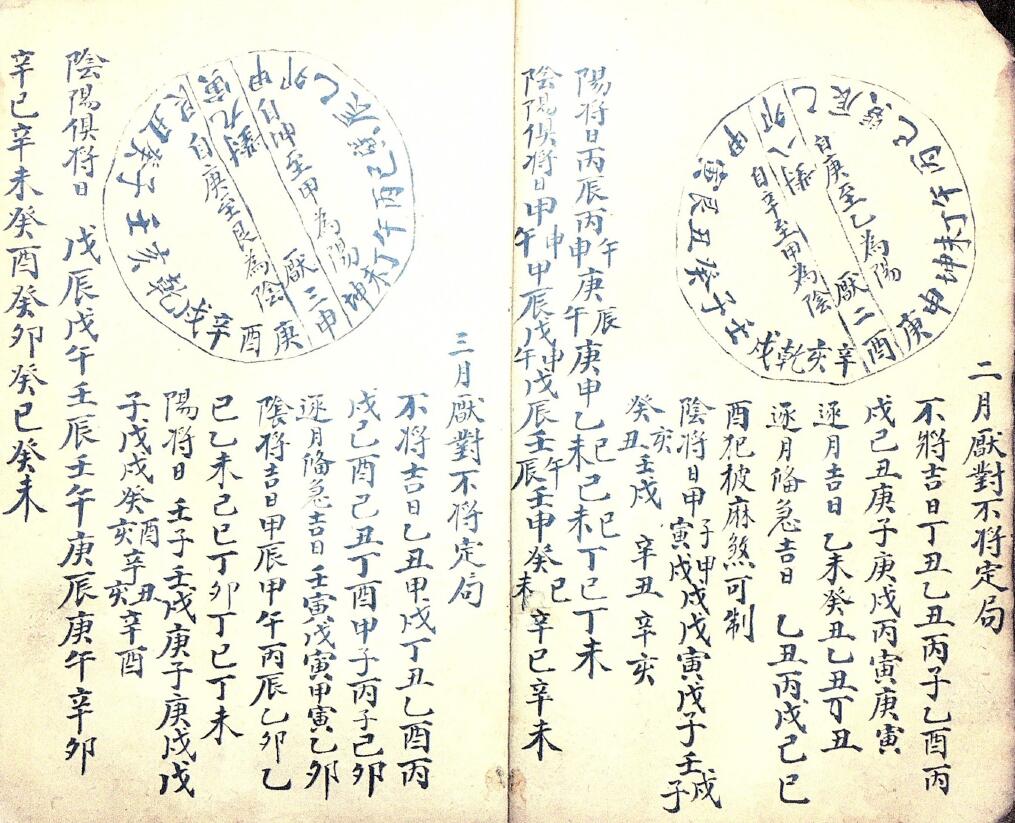 二月厭對不将定局
不將吉日丁丑乙丑丙子乙酉丙
戌己丑庚子庚戌丙寅庚寅
逐月吉日 乙未癸丑乙丑丁丑
逐月俻急吉日 乙丑丙戌己巳
酉犯披麻煞可制
陰将日甲子甲寅戌戊戌戊寅戊子壬戌子
癸亥丑壬戌 辛丑辛亥
陽将日丙辰丙申庚午辰午庚申乙未巳己未巳丁巳丁未
陰陽俱将日甲午申甲辰戊午申戊辰壬辰午壬申癸未巳辛巳辛未
乙辰巽巳丙午丁未坤申庚酉辛戌乾亥壬子癸丑艮寅甲卯
自庚至乙為陽
厭二
八對
自辛至甲為陰
三月厭對不将定局
不将吉日乙丑甲戌丁丑乙酉丙
戌己酉己丑丁酉甲子丙子己卯
逐月俻急吉日壬寅戊寅甲寅乙卯
陰将吉日甲辰甲午丙辰乙卯乙
巳乙未己巳丁卯丁巳丁未
陽将日 壬子壬戌庚子庚戌戊
子戊戌癸酉亥辛丑亥辛酉
陰陽俱将日 戊辰戊午壬辰壬午庚辰庚午辛卯
辛巳辛未癸酉癸卯癸巳癸未
甲卯乙辰巽巳丙午丁未坤申庚酉辛戌乾亥壬子癸丑艮寅
自坤至甲為陽
厭三
九對
自庚至艮為陰